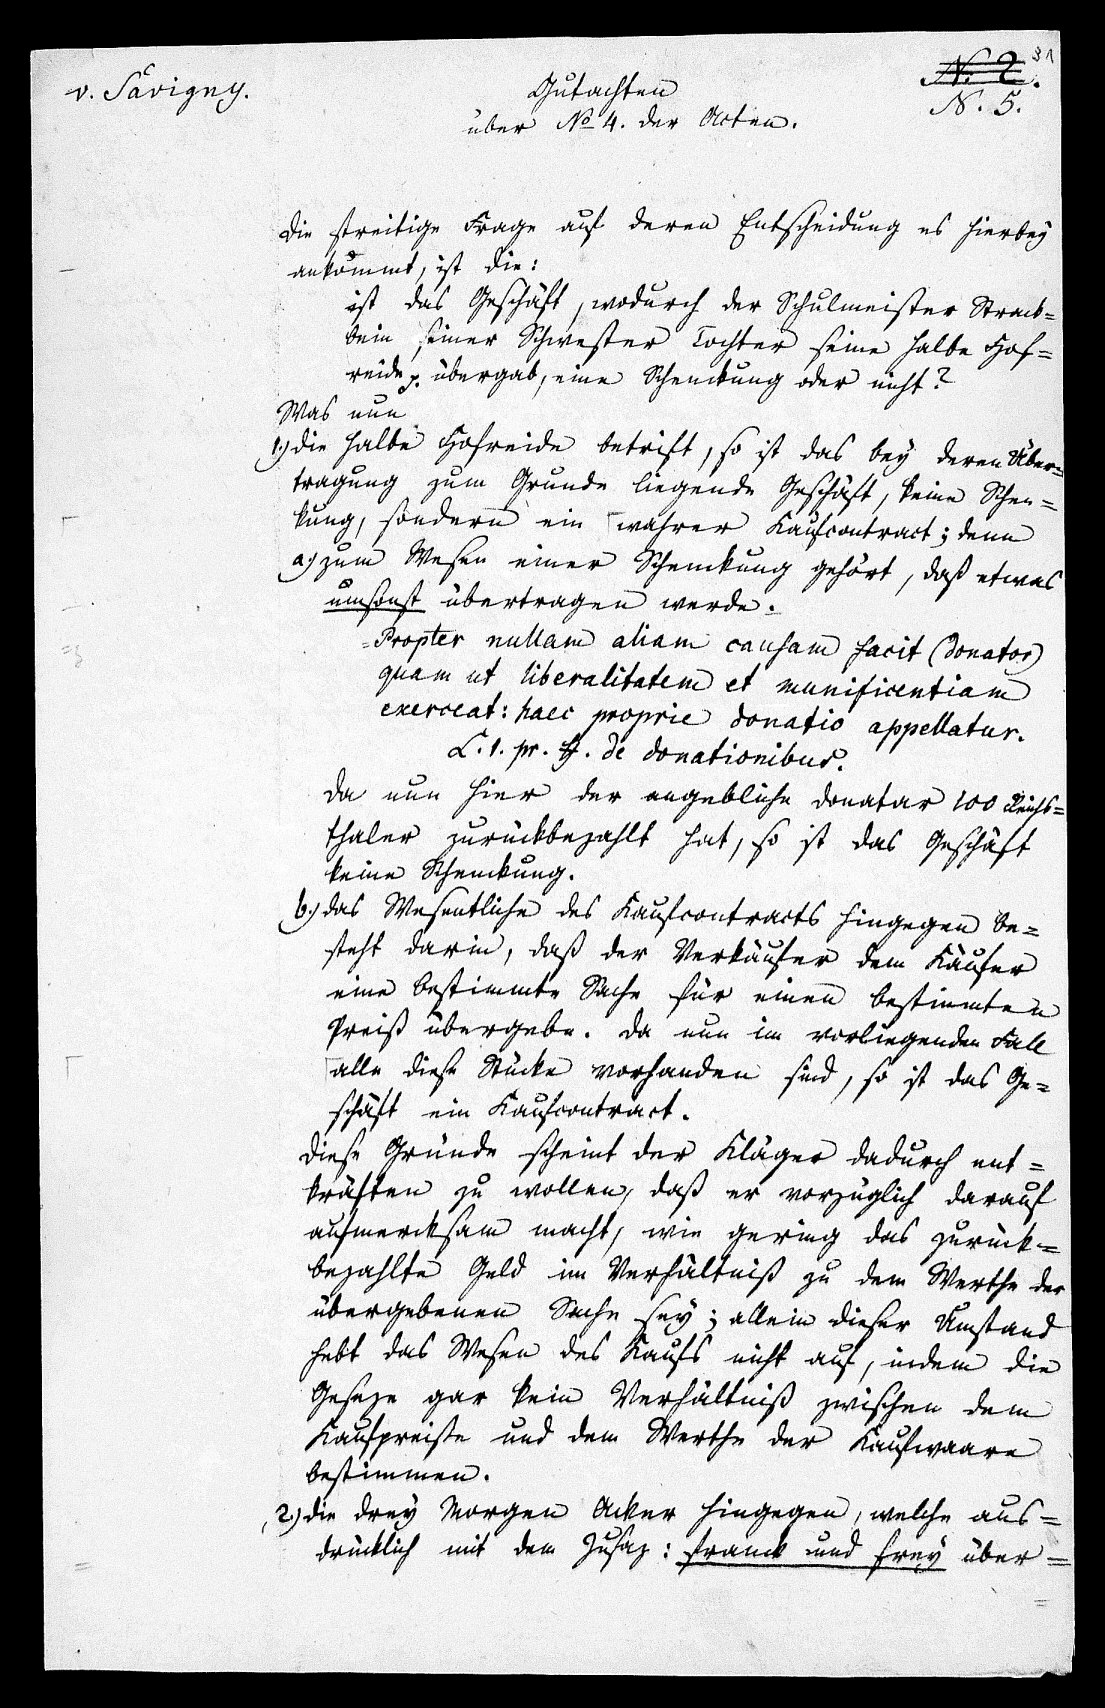 31
v. Savigny.
N. 2.
Gutachten
N. 5.
über No 4. der Acten.
Die streitige Frage auf deren Entscheidung es hierbey
ankommt, ist die:
ist das Geschäft, wodurch der Schulmeister Strack=
bein seiner Schwester Tochter seine halbe Hof=
reide p. übergab, eine Schenckung oder nicht?
Was nun
1.) die halbe Hofreide betrift, so ist das bey deren Über=
tragung zum Grunde liegende Geschäft, keine Schen=
kung, sondern ein wahrer Kaufcontract; denn
a.) zum Wesen einer Schenckung gehört, daß etwas
umsonst übertragen werde.
Propter nullam aliam causam facit (donator)
quam ut liberalitatem et munificentiam
exerceat: haec proprie donatio appellatur.
L. 1. pr. ff. de donationibus.
Da nun hier der angebliche Donatar 100 Reichs=
thaler zurückbezahlt hat, so ist das Geschäft
keine Schenckung.
b.) das Wesentliche des Kaufcontracts hingegen be=
steht darin, daß der Verkäufer dem Käufer
eine bestimmte Sache für einen bestimmten
Preiß übergebe. Da nun im vorliegenden Fall
alle diese Stücke vorhanden sind, so ist das Ge=
schäft ein Kaufcontract.
Diese Gründe scheint der Kläger dadurch ent=
kräften zu wollen, daß er vorzüglich darauf
aufmercksam macht, wie gering das zurück=
bezahlte Geld im Verhältniß zu dem Werthe der
übergebenen Sache sey; allein dieser Umstand
hebt das Wesen des Kaufs nicht auf, indem die
Geseze gar kein Verhältniß zwischen dem
Kaufpreiße und dem Werthe der Kaufwaare
bestimmen.
2.) die drey Morgen Acker hingegen, welche aus=
drücklich mit dem Zusaz: franck und frey über=